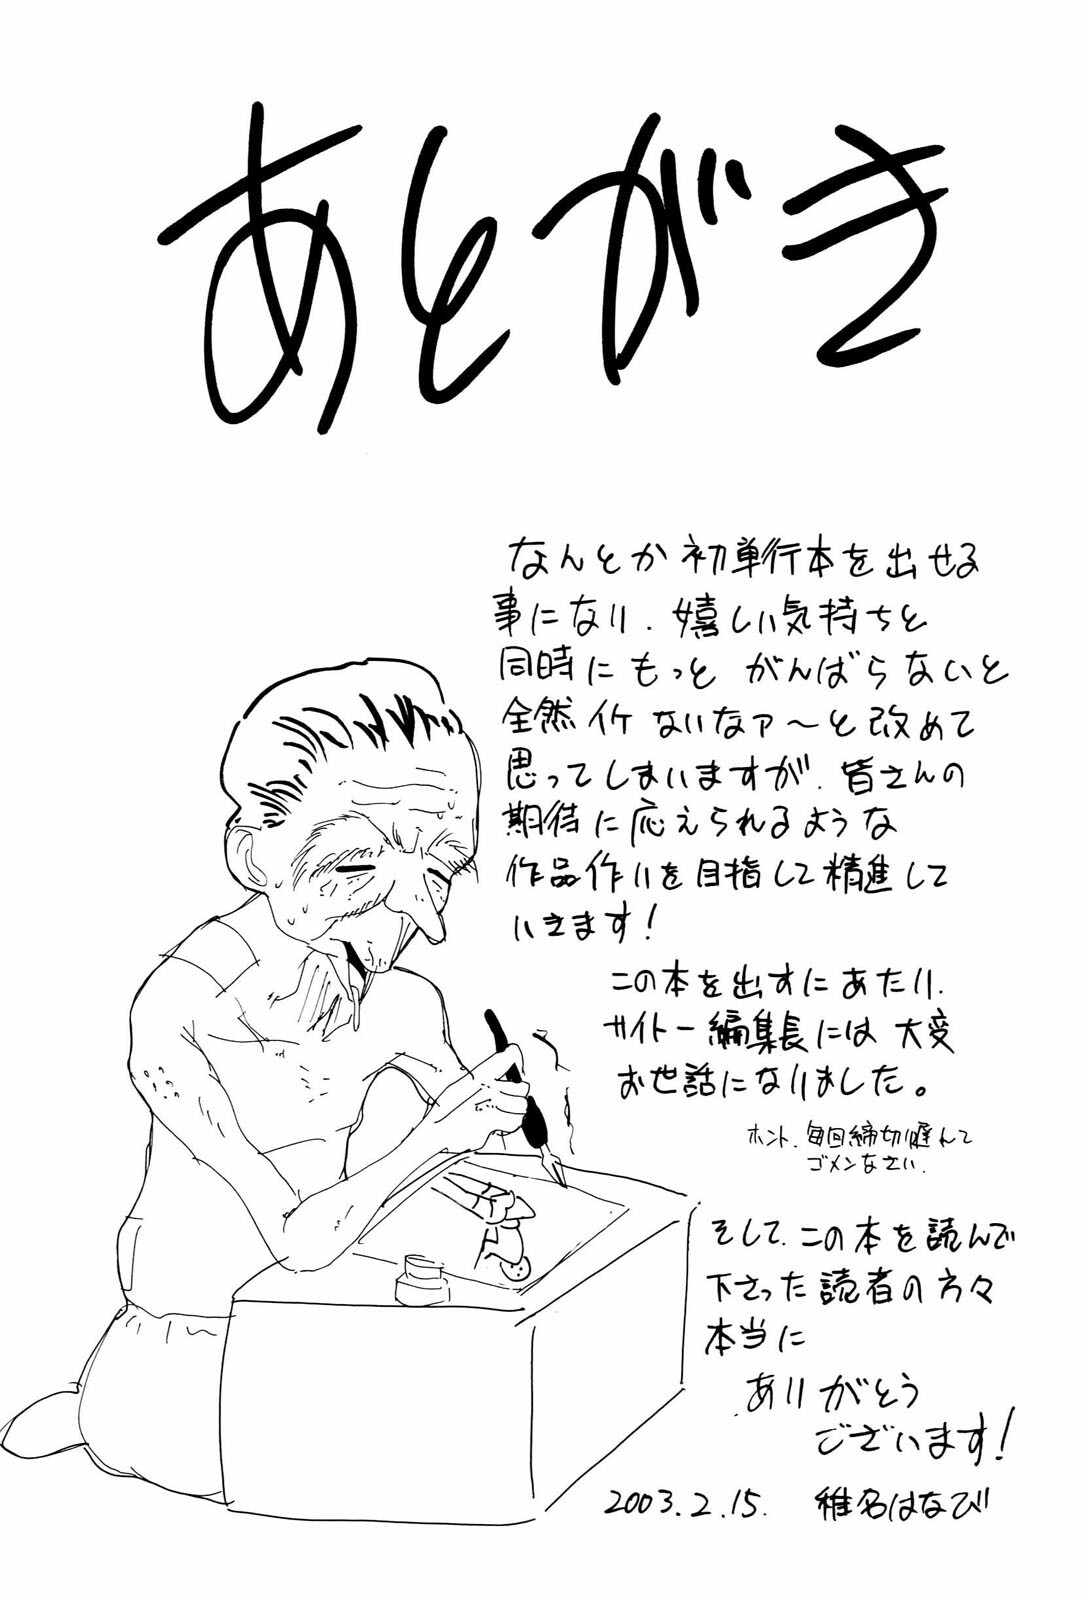 あとがき
なんとか初単行本を出せる
事になり、嬉しい気持ちと
同時にもっと がんばらないと
全然イケないなァ～と改めて
思ってしまいますが、皆さんの
期待に応えられるような
作品作りを目指して精進して
いきます!
この本を出すにあたり、
サイトー編集長には大変
お世話になりました。
ホント、毎回締切り遅れて
ゴメンなさい。
そして、この本を読んで
下さった読者の方々
本当に
ありがとう
ございます!
2003.2.15. 椎名はなび